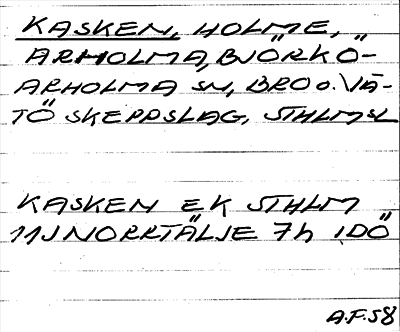 KASKEN, HOLME,
ÄRHOLMA, BJÖRKÖ-
ARHOLMA SN, BRO o. VÄ-
TÖ SKEPPSLAG, STHLMSL
KASKEN EK STHLM
11J NORRTÄLJE 7h IDÖ
A.F. 58